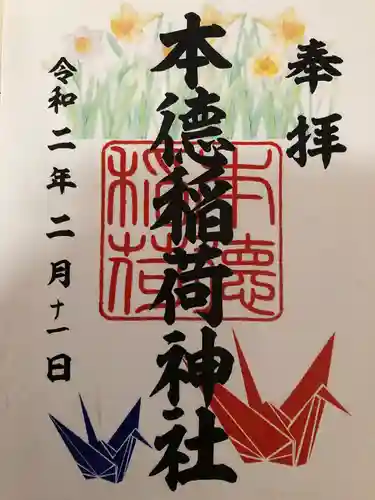 奉拝
本德稲荷神社
本德
稲荷
令和二年二月十一日